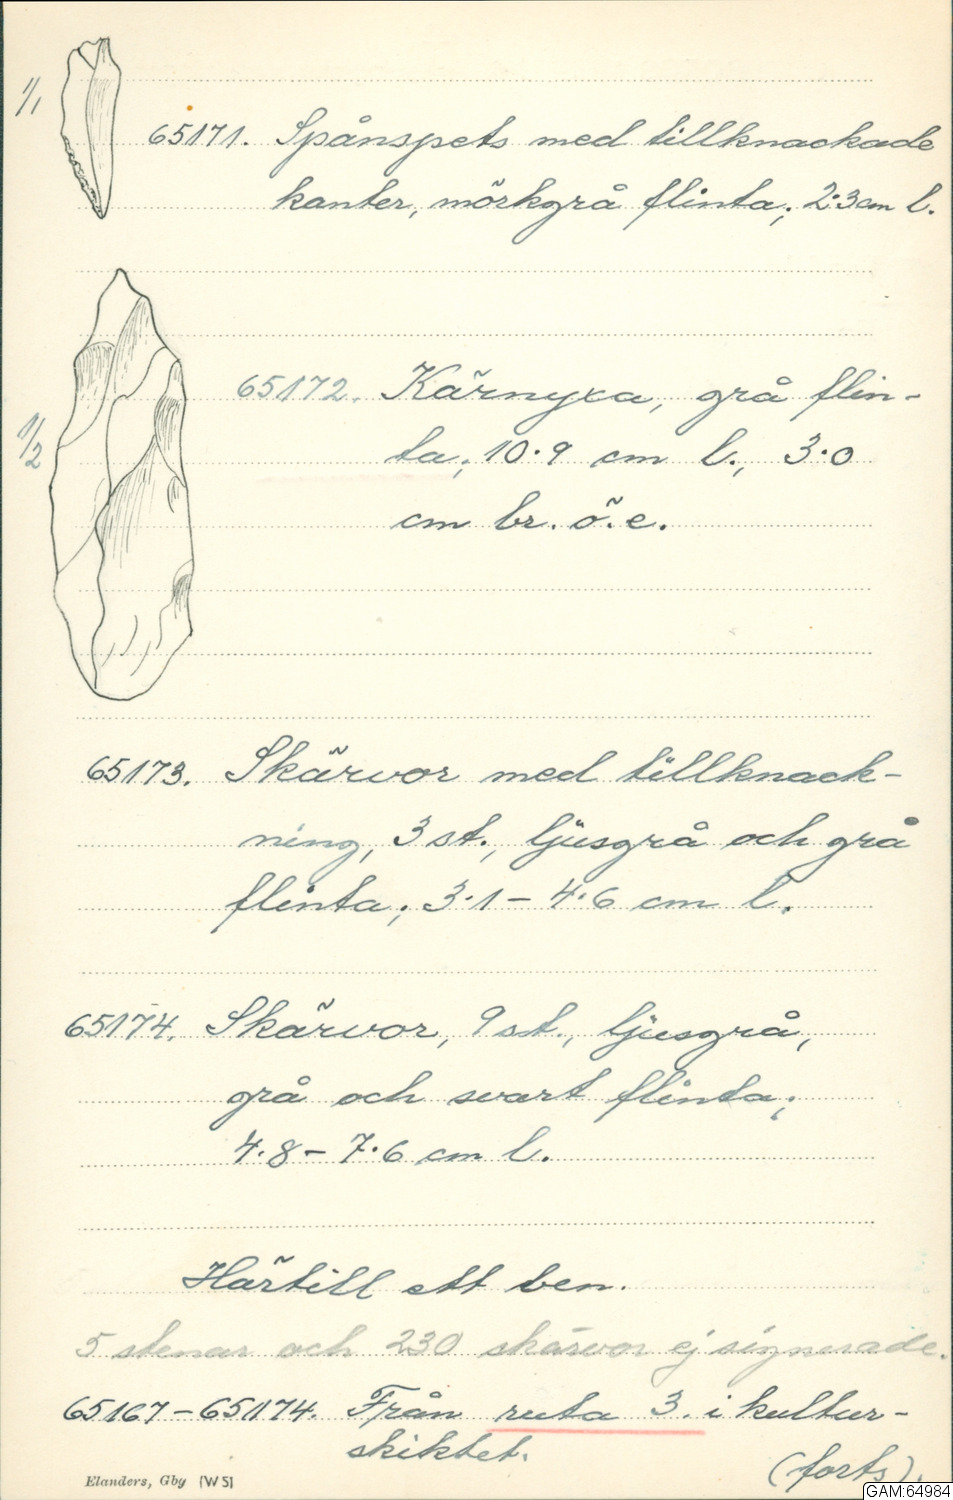 1/1
65171. Spånspets med tillknackade
kanter, mörkgrå flinta; 2·3 cm l.
65172. Kärnyxa, grå flin-
1/2
ta; 10·9 cm l., 3·0
cm br. ö. e.
65173. Skärvor med tillknack-
ning, 3 st., ljusgrå och grå
flinta; 3·1 – 4·6 cm l.
65174. Skärvor, 9 st., ljusgrå,
grå och svart flinta;
4·8 – 7·6 cm l.
Härtill ett ben.
5 stenar och 230 skärvor ej signerade.
65167 – 65174. Från ruta 3. i kultur-
skiktet.
(forts).
Elanders, Gby (W 5)
GAM:64984